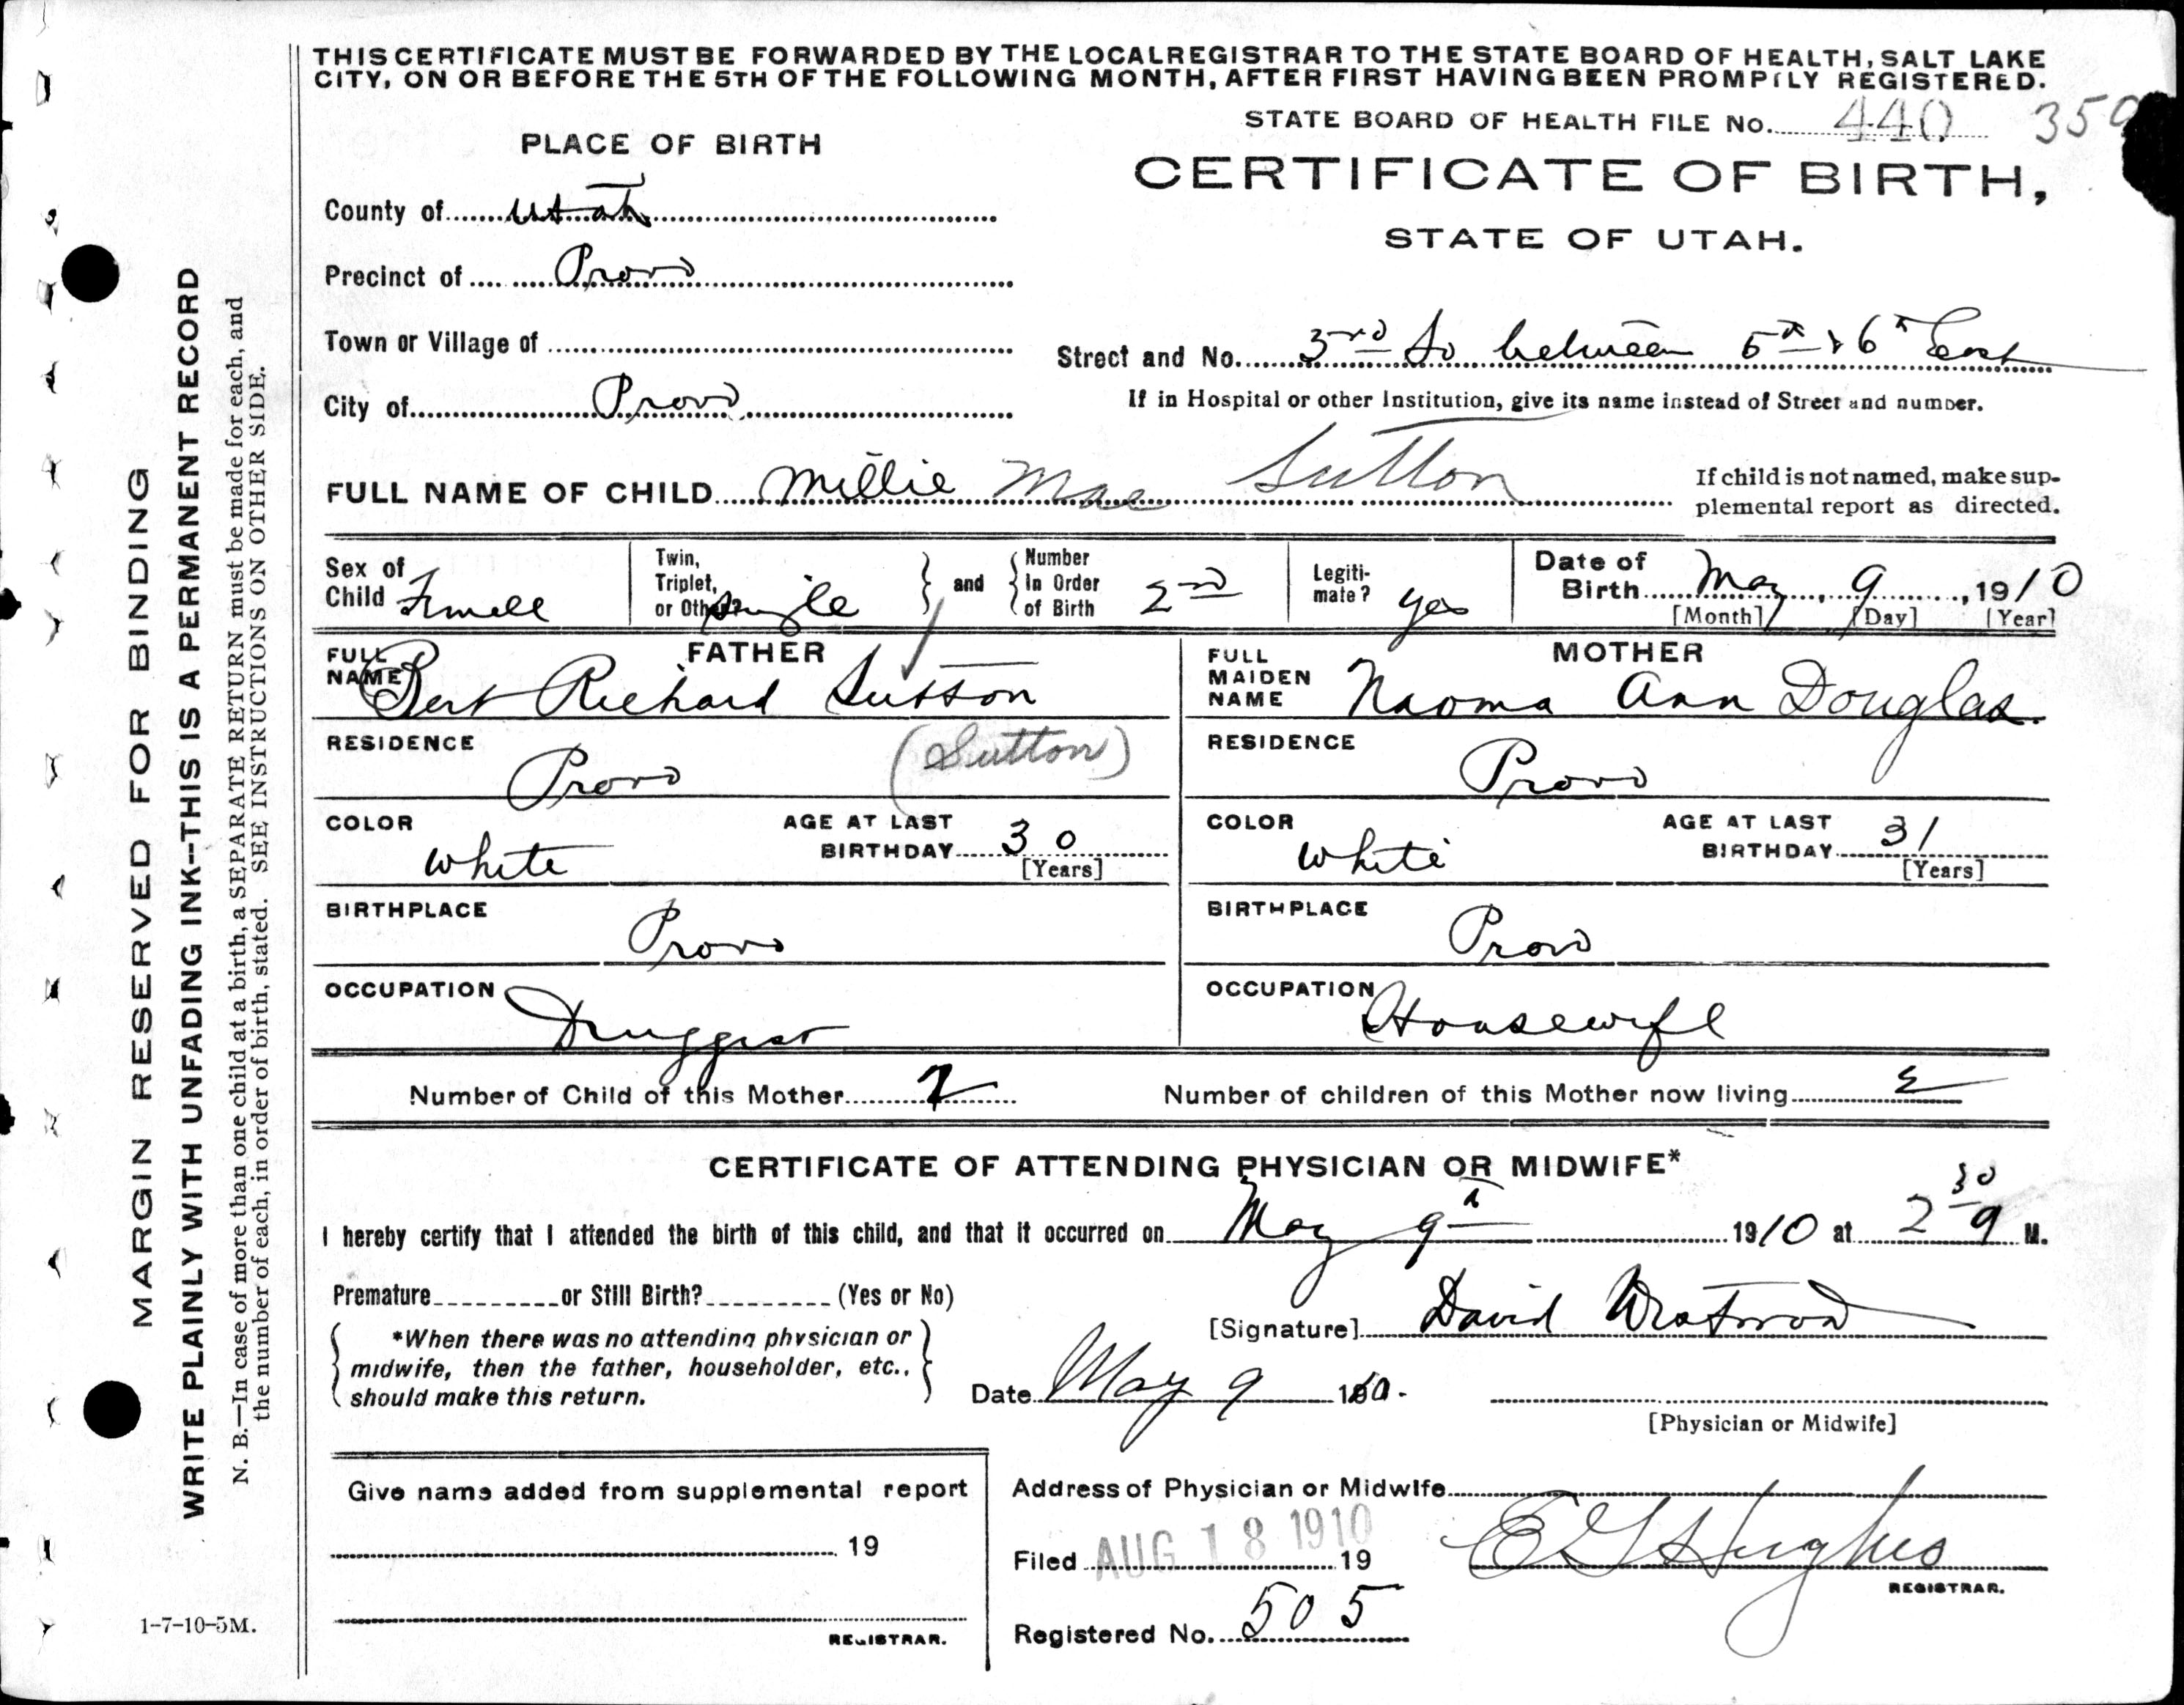 THIS CERTIFICATE MUST BE FORWARDED BY THE LOCAL REGISTRAR TO THE STATE BOARD OF HEALTH, SALT LAKE
CITY, ON OR BEFORE THE 5TH OF THE FOLLOWING MONTH, AFTER FIRST HAVING BEEN PROMPTLY REGISTERED.
STATE BOARD OF HEALTH FILE No. 440 350
PLACE OF BIRTH
CERTIFICATE OF BIRTH,
STATE OF UTAH.
County of Utah
Precinct of Provo
Town or Village of
City of Provo
Street and No. 3rd So between 5th & 6th East
If in Hospital or other Institution, give its name instead of Street and number.
FULL NAME OF CHILD Millie Mae Sutton
If child is not named, make sup-
plemental report as directed.
Sex of Child Female
Twin, Triplet, or Other? Single
and Number In Order of Birth 2nd
Legiti-mate? yes
Date of Birth May, 9, 1910
[Month] [Day] [Year]
FATHER
FULL NAME Bert Richard Sutton
RESIDENCE Provo (Sutton)
COLOR White
AGE AT LAST BIRTHDAY 30 [Years]
BIRTHPLACE Provo
OCCUPATION Druggist
MOTHER
FULL MAIDEN NAME Naoma Ann Douglas.
RESIDENCE Provo
COLOR White
AGE AT LAST BIRTHDAY 31 [Years]
BIRTHPLACE Provo
OCCUPATION Housewife
Number of Child of this Mother 2
Number of children of this Mother now living
CERTIFICATE OF ATTENDING PHYSICIAN OR MIDWIFE*
I hereby certify that I attended the birth of this child, and that it occurred on May 9th 1910 at 2 30 a M.
Premature or Still Birth? (Yes or No)
*When there was no attending physician or
midwife, then the father, householder, etc.,
should make this return.
[Signature] David Westwood
Date May 9 1910.
[Physician or Midwife]
Give name added from supplemental report
19
REGISTRAR.
Address of Physician or Midwife
Filed AUG 18 1910 19
E G Hughes
REGISTRAR.
Registered No. 505
MARGIN RESERVED FOR BINDING
WRITE PLAINLY WITH UNFADING INK--THIS IS A PERMANENT RECORD
N. B.—In case of more than one child at a birth, a SEPARATE RETURN must be made for each, and
the number of each, in order of birth, stated. SEE INSTRUCTIONS ON OTHER SIDE.
1-7-10-5M.